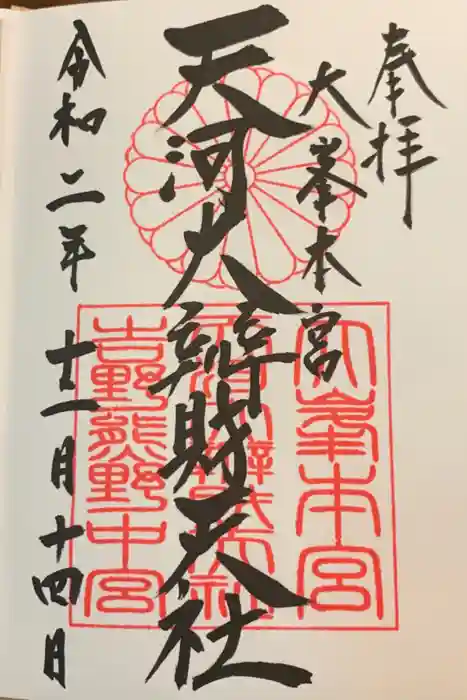 奉拝
大峯本宮
天河大辨財天社
令和二年十二月十四日
大峯本宮
吉野熊野中宮